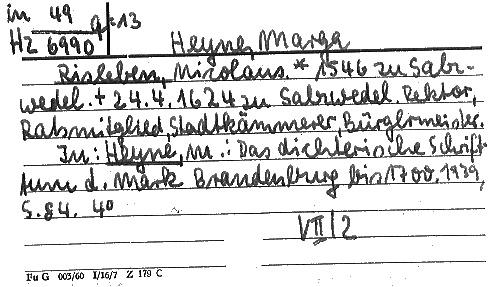 in 49 q:13
HZ 6990
Heyne, Marga
Risleben, Nicolaus. * 1546 zu Salz-
wedel. + 24.4.1624 zu Salzwedel. Rektor,
Ratsmitglied, Stadtkämmerer, Bürgermeister.
In: Heyne, M.: Das dichterische Schrift-
tum d. Mark Brandenburg bis 1700. 1939,
S. 84. 4°
VII/2
Fu G 003/60 I/16/7 Z 179 C